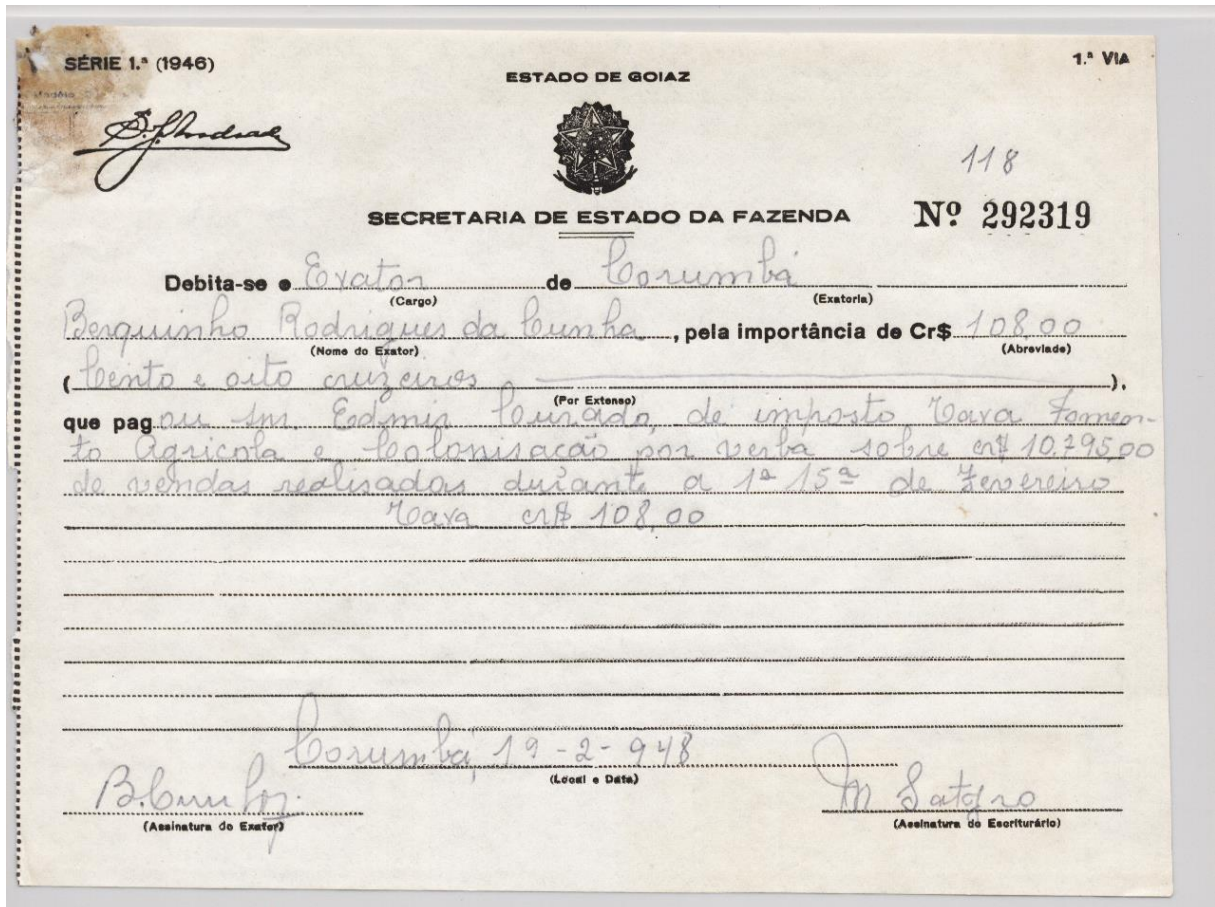 SÉRIE 1.ª (1946)
1.ª VIA
ESTADO DE GOIAZ
118
SECRETARIA DE ESTADO DA FAZENDA
Nº 292319
Debita-se o Exator de Corumbá
(Cargo) (Exatoria)
Berquinho Rodrigues da Cunha, pela importância de Cr$ 108,00
(Nome do Exator) (Abreviado)
(Cento e oito cruzeiros),
(Por Extenso)
que pagou snr. Edmir Curado, de imposto Taxa Fomen-
to Agricola e Colonisação por verba sobre cr$ 10.795,00
de vendas realisadas durante a 1ª 15ª de Fevereiro
Taxa cr$ 108,00
Corumbá, 19-2-948
(Local e Data)
B. Cunha M Satyro
(Assinatura do Exator) (Assinatura do Escriturário)